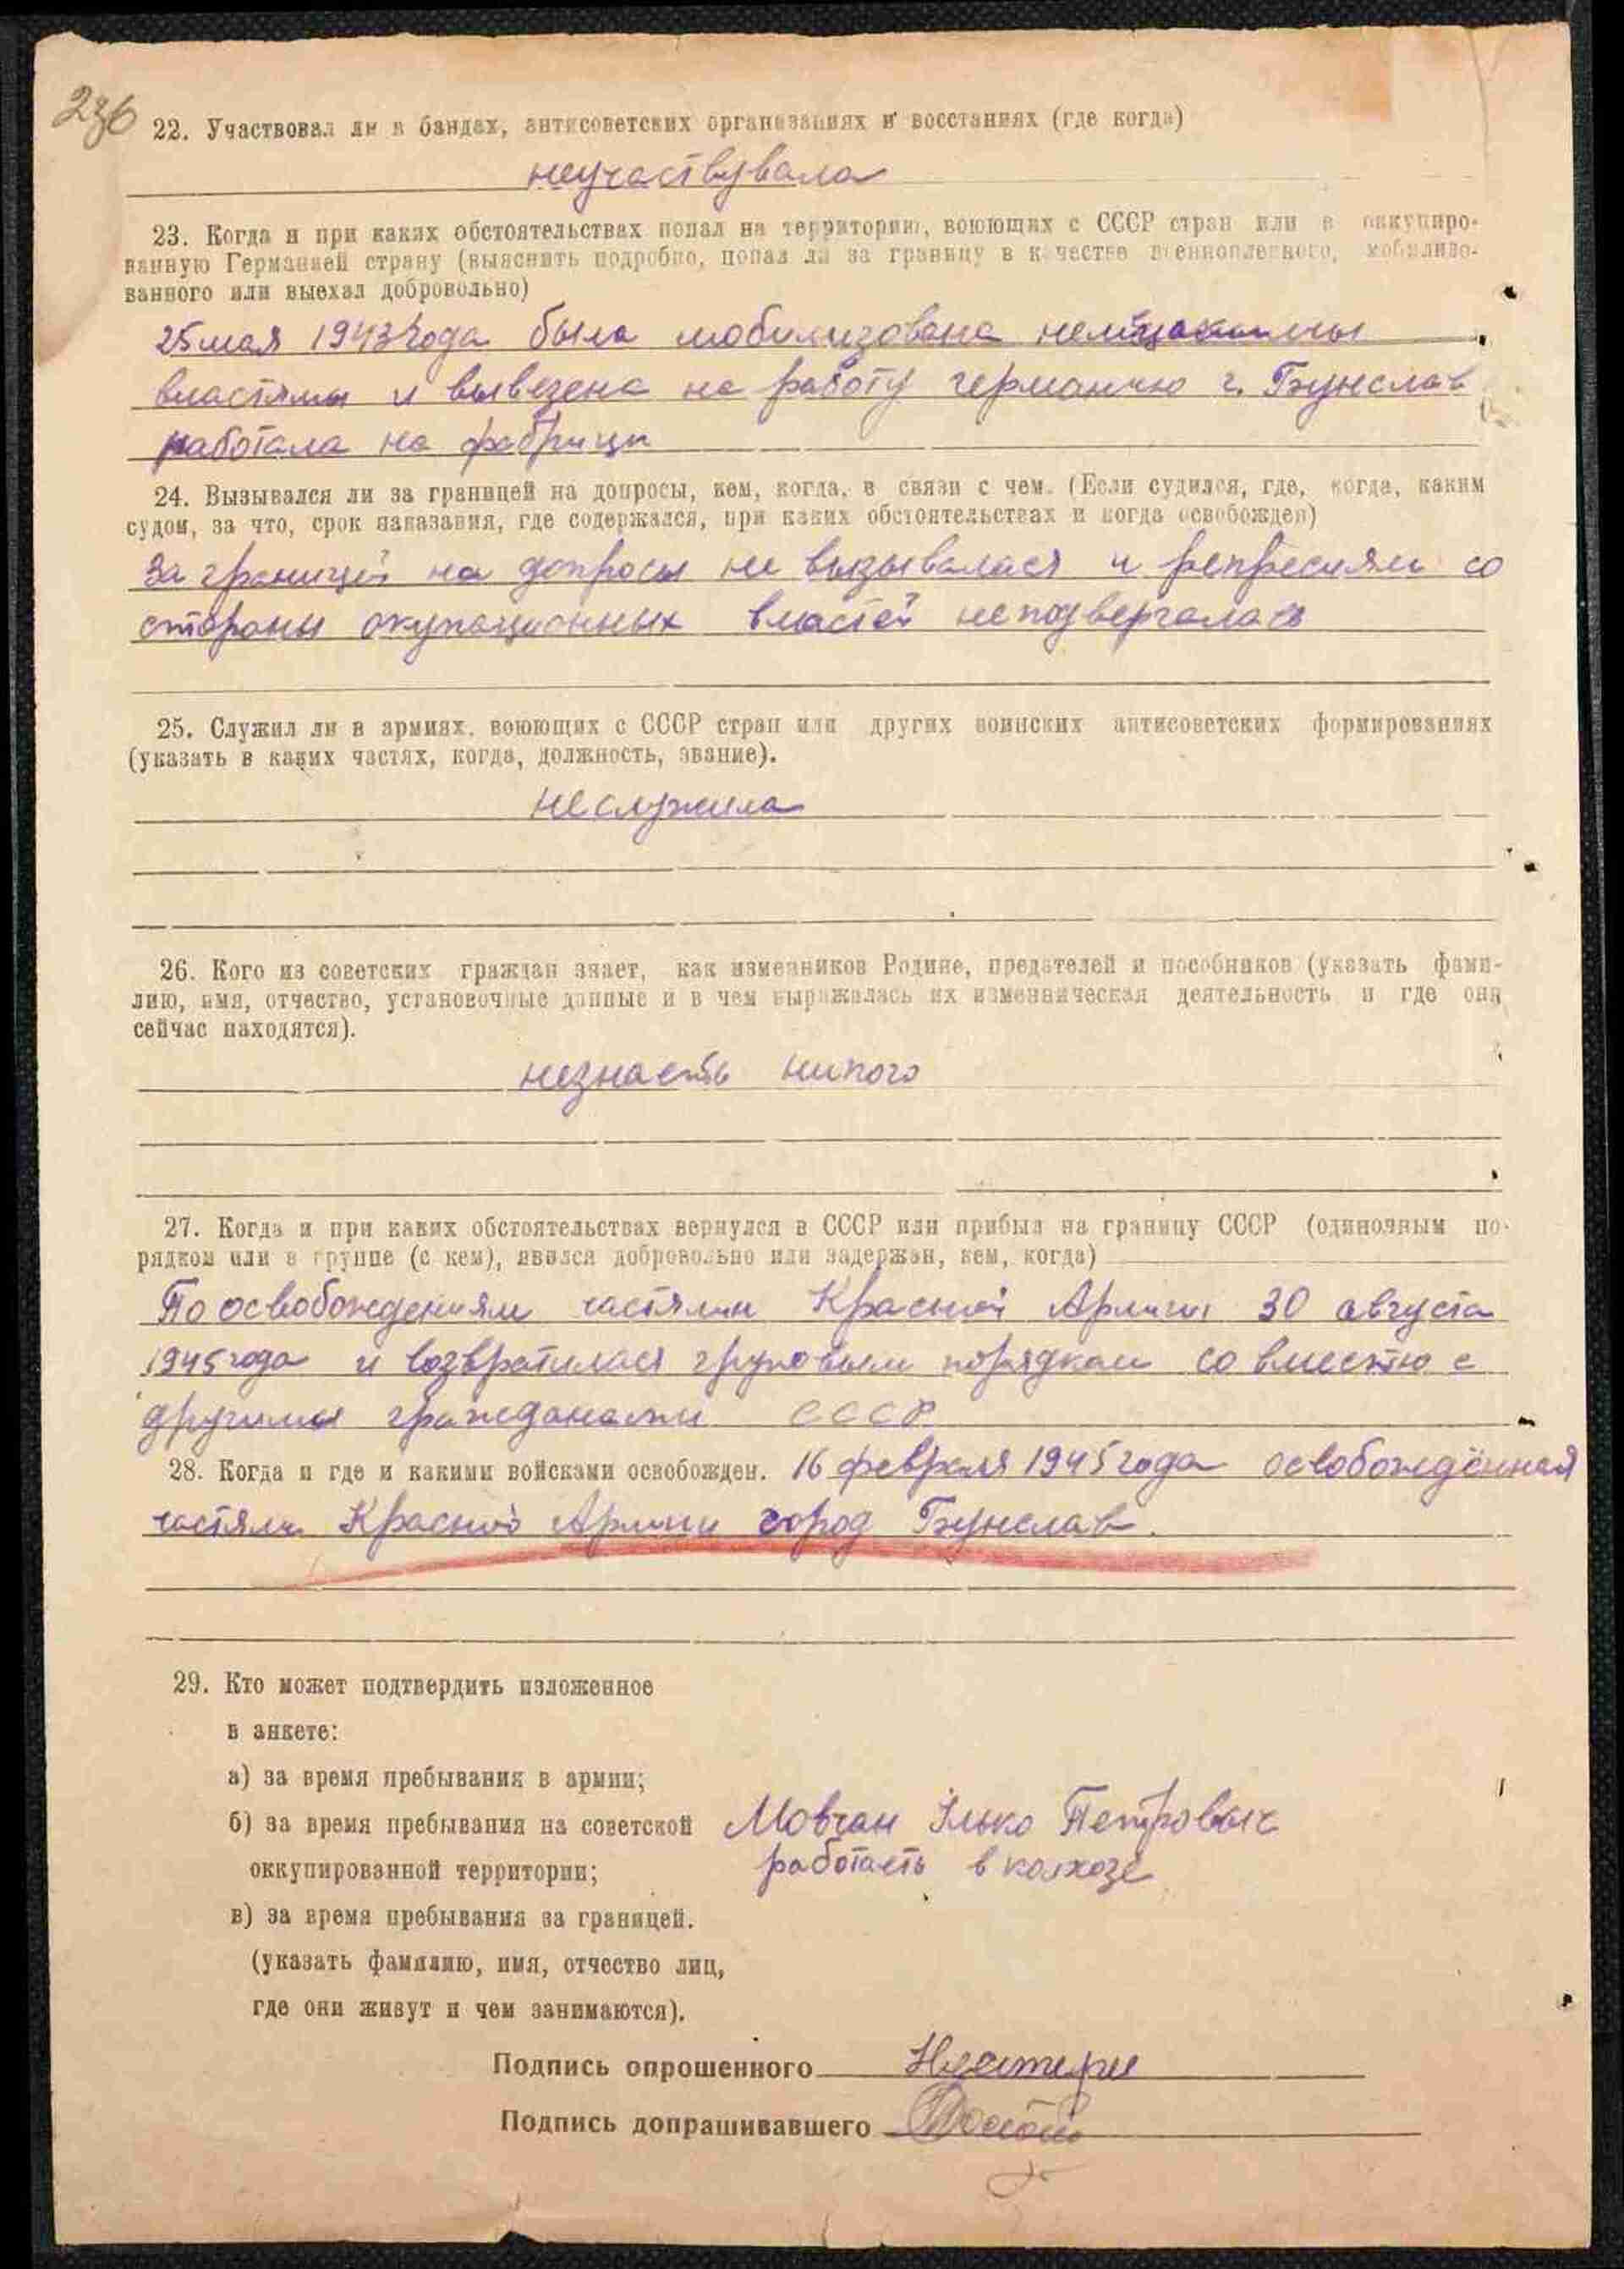 236
22. Участвовал ли в бандах, антисоветских организациях и восстаниях (где когда)
неучаствувала
23. Когда и при каких обстоятельствах попал на территорию, воюющих с СССР стран или в оккупиро-
ванную Германией страну (выяснить подробно, попал ли за границу в качестве военнопленного, мобилизо-
ванного или выехал добровольно)
25 мая 1943 года была мобилизована
властями и вывезена на работу германию г. Бунслав
работала на фабрици
24. Вызывался ли за границей на допросы, кем, когда, в связи с чем. (Если судился, где, когда, каким
судом, за что, срок наказания, где содержался, при каких обстоятельствах и когда освобожден)
За границей на допросы не вызывалася и репресиям со
стороны окупационных властей неподвергалась
25. Служил ли в армиях, воюющих с СССР стран или других воинских антисоветских формированиях
(указать в каких частях, когда, должность, звание).
неслужила
26. Кого из советских граждан знает, как изменников Родине, предателей и пособников (указать фами-
лию, имя, отчество, установочные данные и в чем выражалась их изменническая деятельность и где они
сейчас находятся).
незнаеть никого
27. Когда и при каких обстоятельствах вернулся в СССР или прибыл на границу СССР (одиночным по-
рядком или в группе (с кем), явился добровольно или задержан, кем, когда)
По освобождениям частями Красной Армии 30 августа
1945 года и возвратилася груповым порядком со вместю с
другими гражданами СССР
28. Когда и где и какими войсками освобожден. 16 февраля 1945 года освобождённая
частями Красной Армии город Бунслав.
29. Кто может подтвердить изложенное
в анкете:
а) за время пребывания в армии;
б) за время пребывания на советской Мовчан Илько Петровыч
оккупированной территории; работаеть в колхозе
в) за время пребывания за границей.
(указать фамилию, имя, отчество лиц,
где они живут и чем занимаются).
Подпись опрошенного
Подпись допрашивавшего